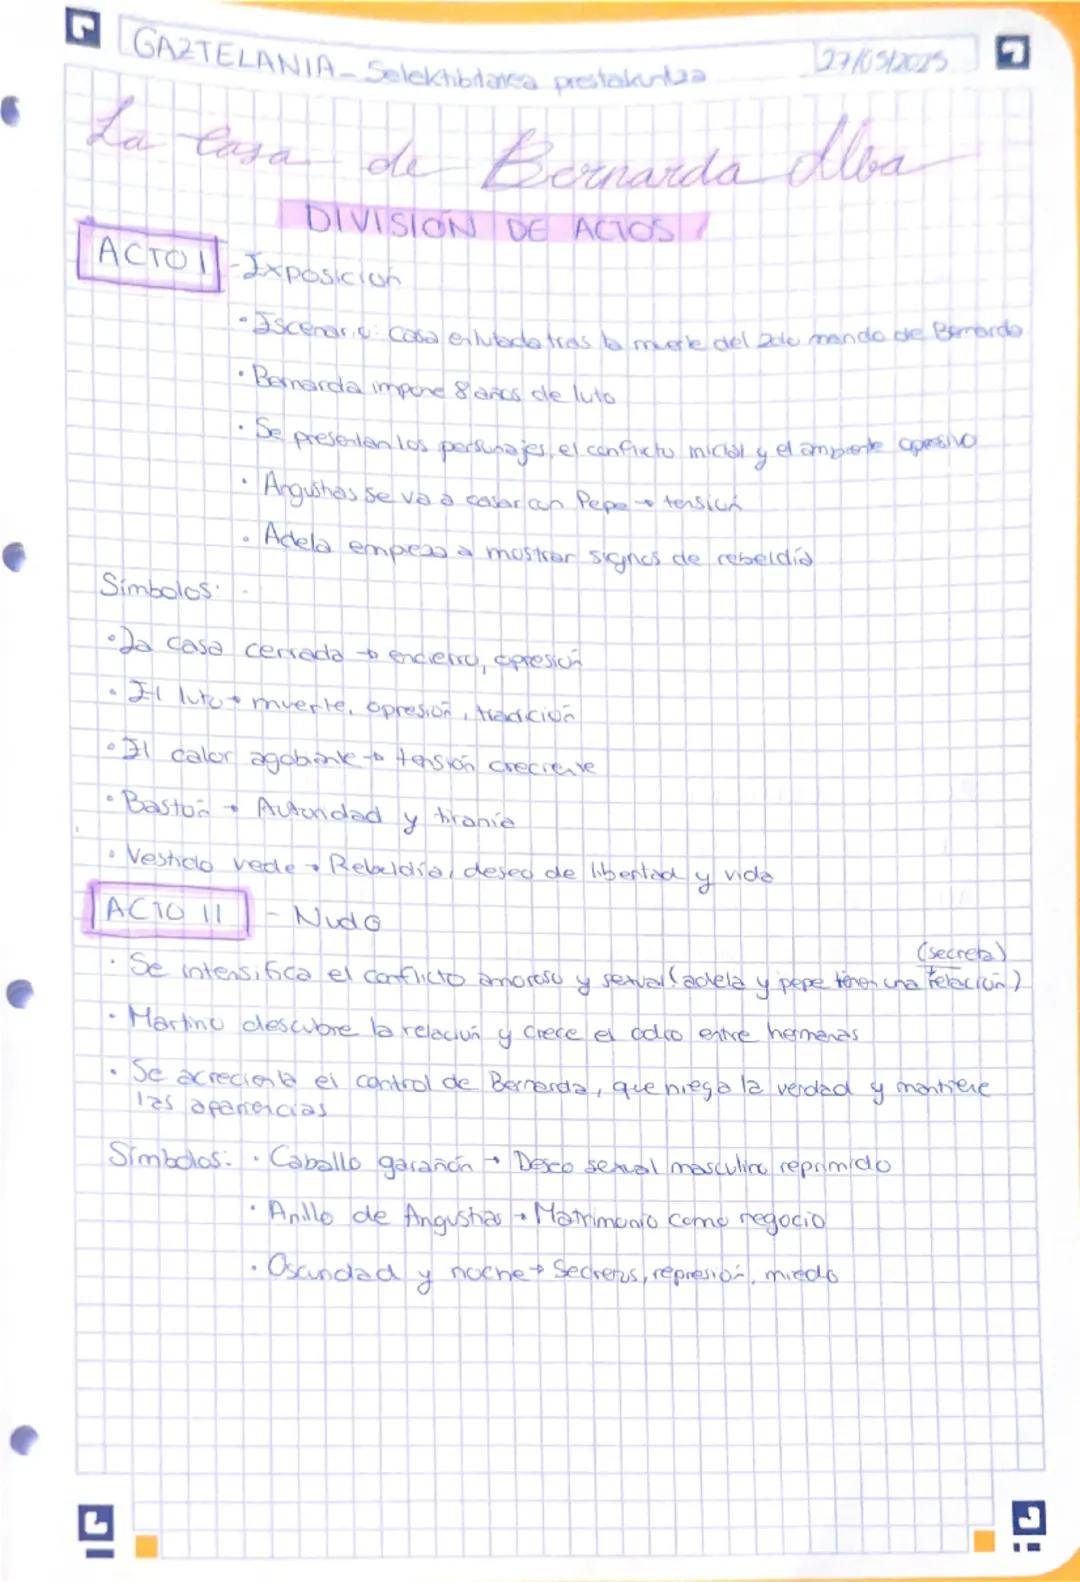 GAZTELANIA - Selektibitatea prestakuntza 27/05/2025
La Casa de Bernarda Alba
DIVISIÓN DE ACTOS
ACTO I - Exposición
• Escenario: Casa enlutada tras la muerte del 2do marido de Bernarda
• Bernarda impone 8 años de luto
• Se presentan los personajes, el conflicto inicial y el ambiente opresivo
• Angustias se va a casar con Pepe → tensión
• Adela empeza a mostrar signos de rebeldía
Símbolos:
• La casa cerrada → encierro, opresión
• El luto → muerte, opresión, tradición
• El calor agobiante → tensión creciente
• Bastón → Autoridad y tiranía
• Vestido vede → Rebeldía, deseo de libertad y vida
ACTO II - Nudo
(secreta)
• Se intensifica el conflicto amoroso y sexual (adela y pepe tienen una relación)
• Martirio descubre la relación y crece el odio entre hermanas
• Se acrecienta el control de Bernarda, que niega la verdad y mantiene
las apariencias
Símbolos: • Caballo garañón → Deseo sexual masculino reprimido
• Anillo de Angustias → Matrimonio como negocio
• Oscuridad y noche → Secretos, represión, miedo